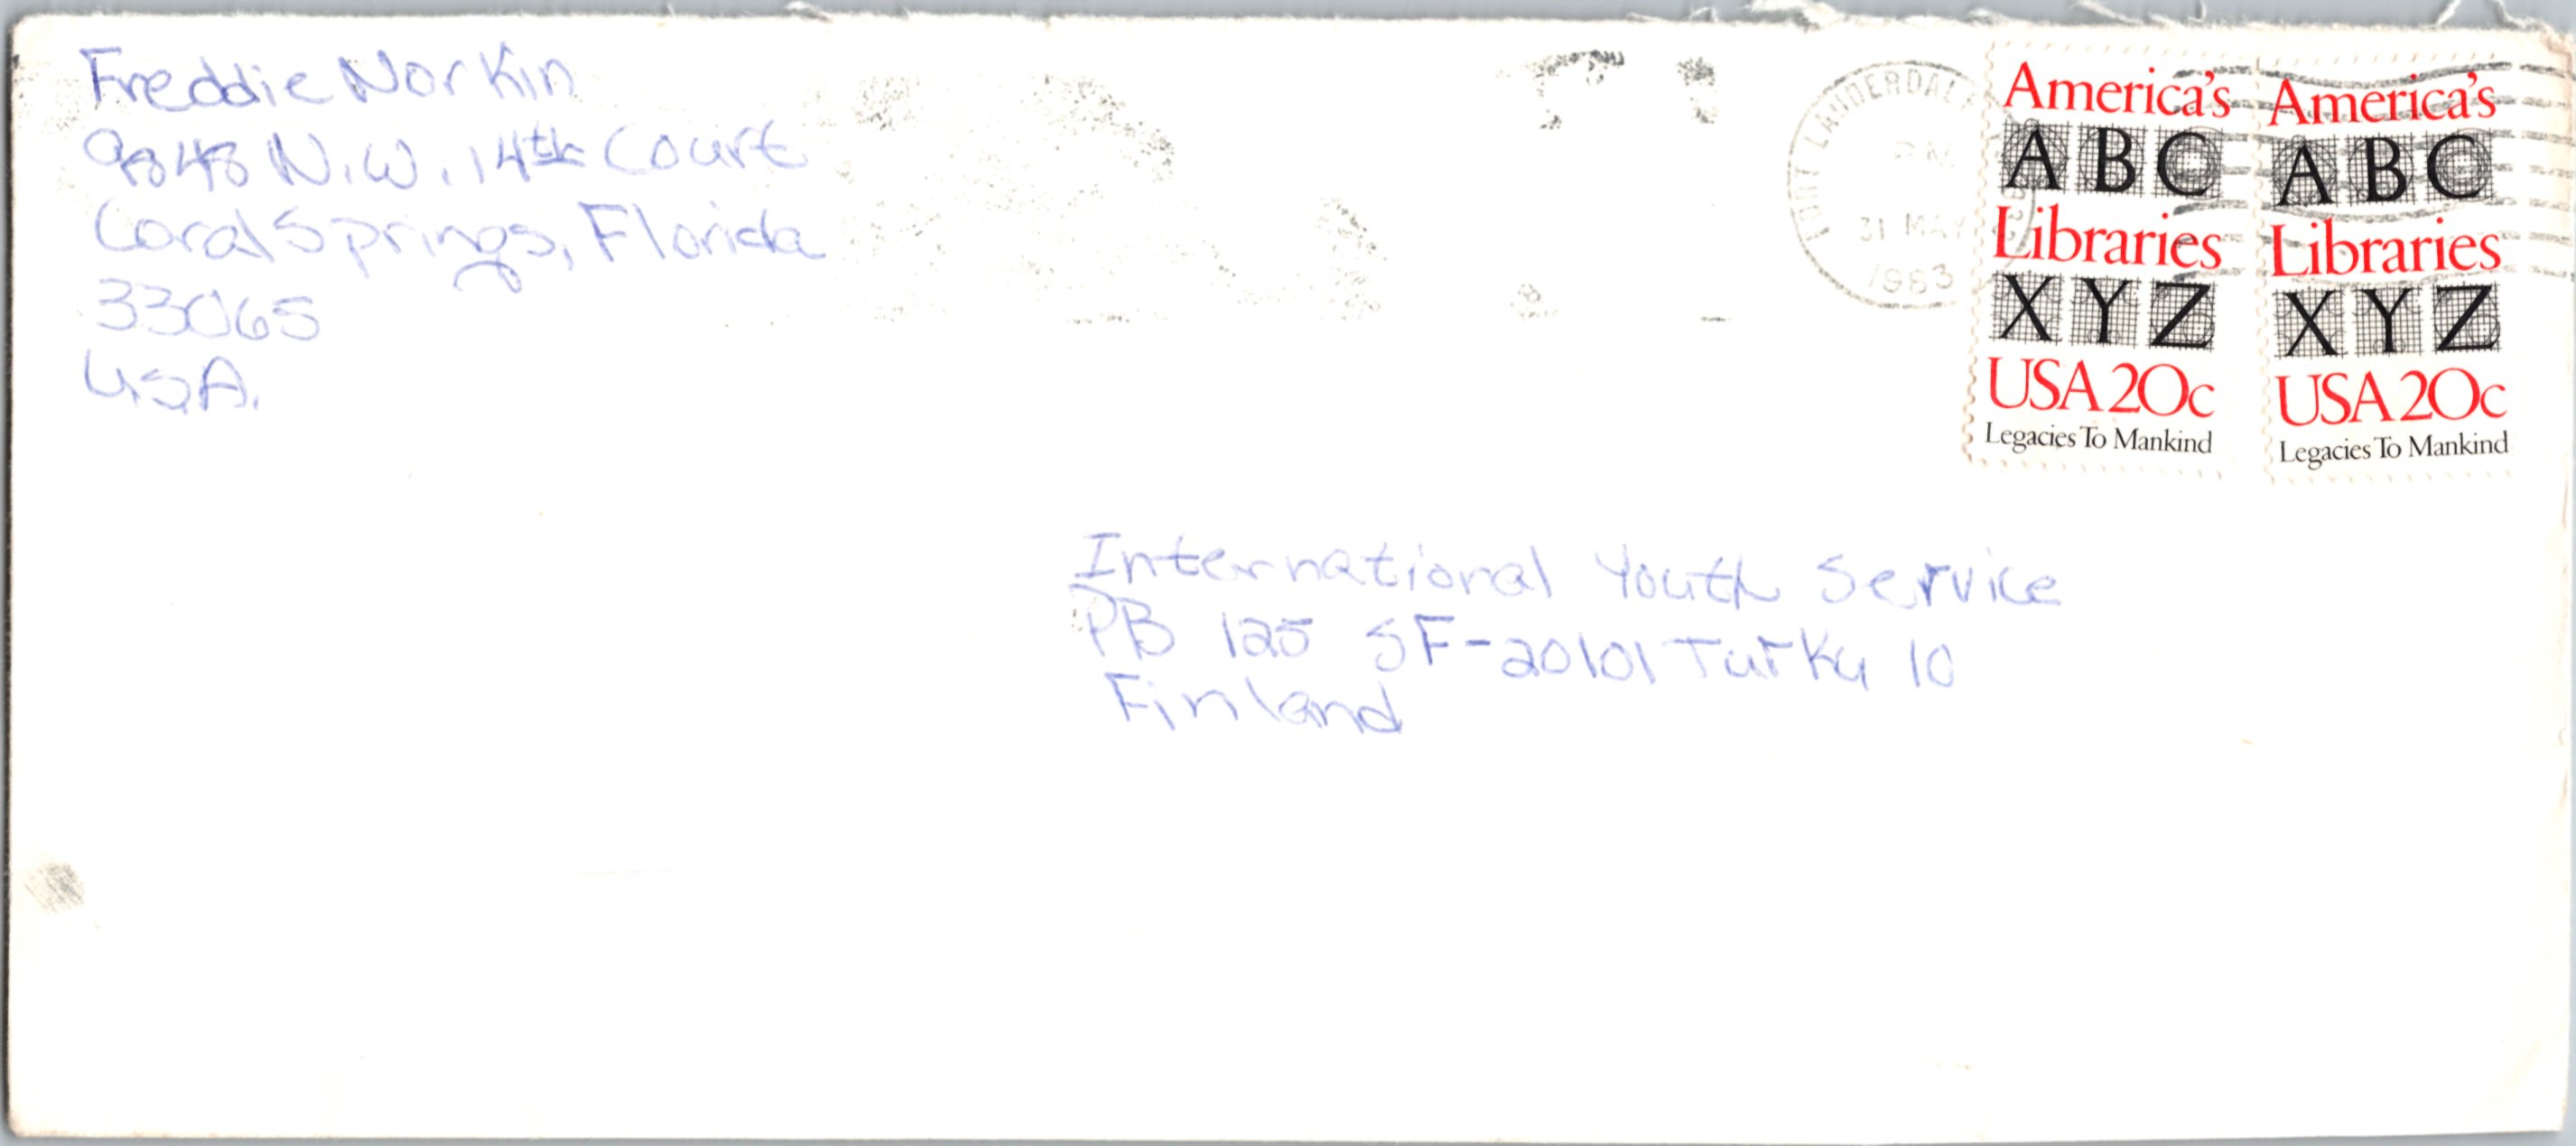 Freddie Norkin
9848 N.W. 14th Court
Coral Springs, Florida
33065
USA.
FORT LAUDERDALE
PM
31 MAY
1983
America's
ABC
Libraries
XYZ
USA 20c
Legacies To Mankind
America's
ABC
Libraries
XYZ
USA 20c
Legacies To Mankind
International Youth Service
PB 125 SF-20101 Turku 10
Finland